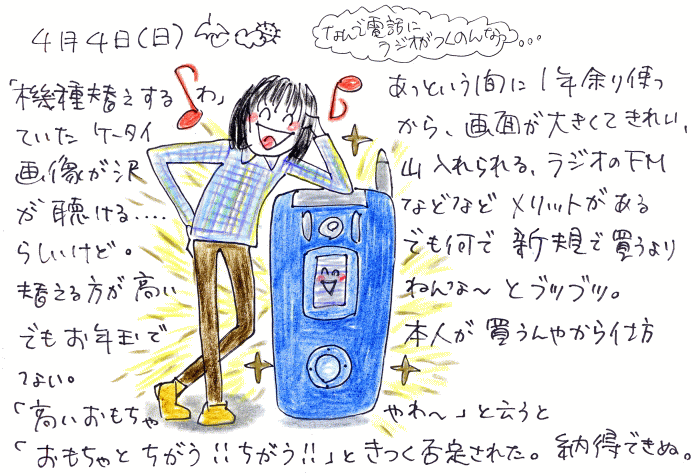 4月4日(日)
なんで電話に
ラジオがつくのんなぁ...
「機種替えするわ」あっという間に1年余り使っ
ていたケータイから、画面が大きくてきれい、
画像が沢山入れられる、ラジオのFM
が聴ける....などなどメリットがある
らしいけど。でも何で新規で買うより
替える方が高いねんな〜とブツブツ。
でもお年玉で本人が買うんやから仕方
ない。
「高いおもちゃやわ〜」と云うと
「おもちゃとちがう!!ちがう!!」ときつく否定された。納得できぬ。